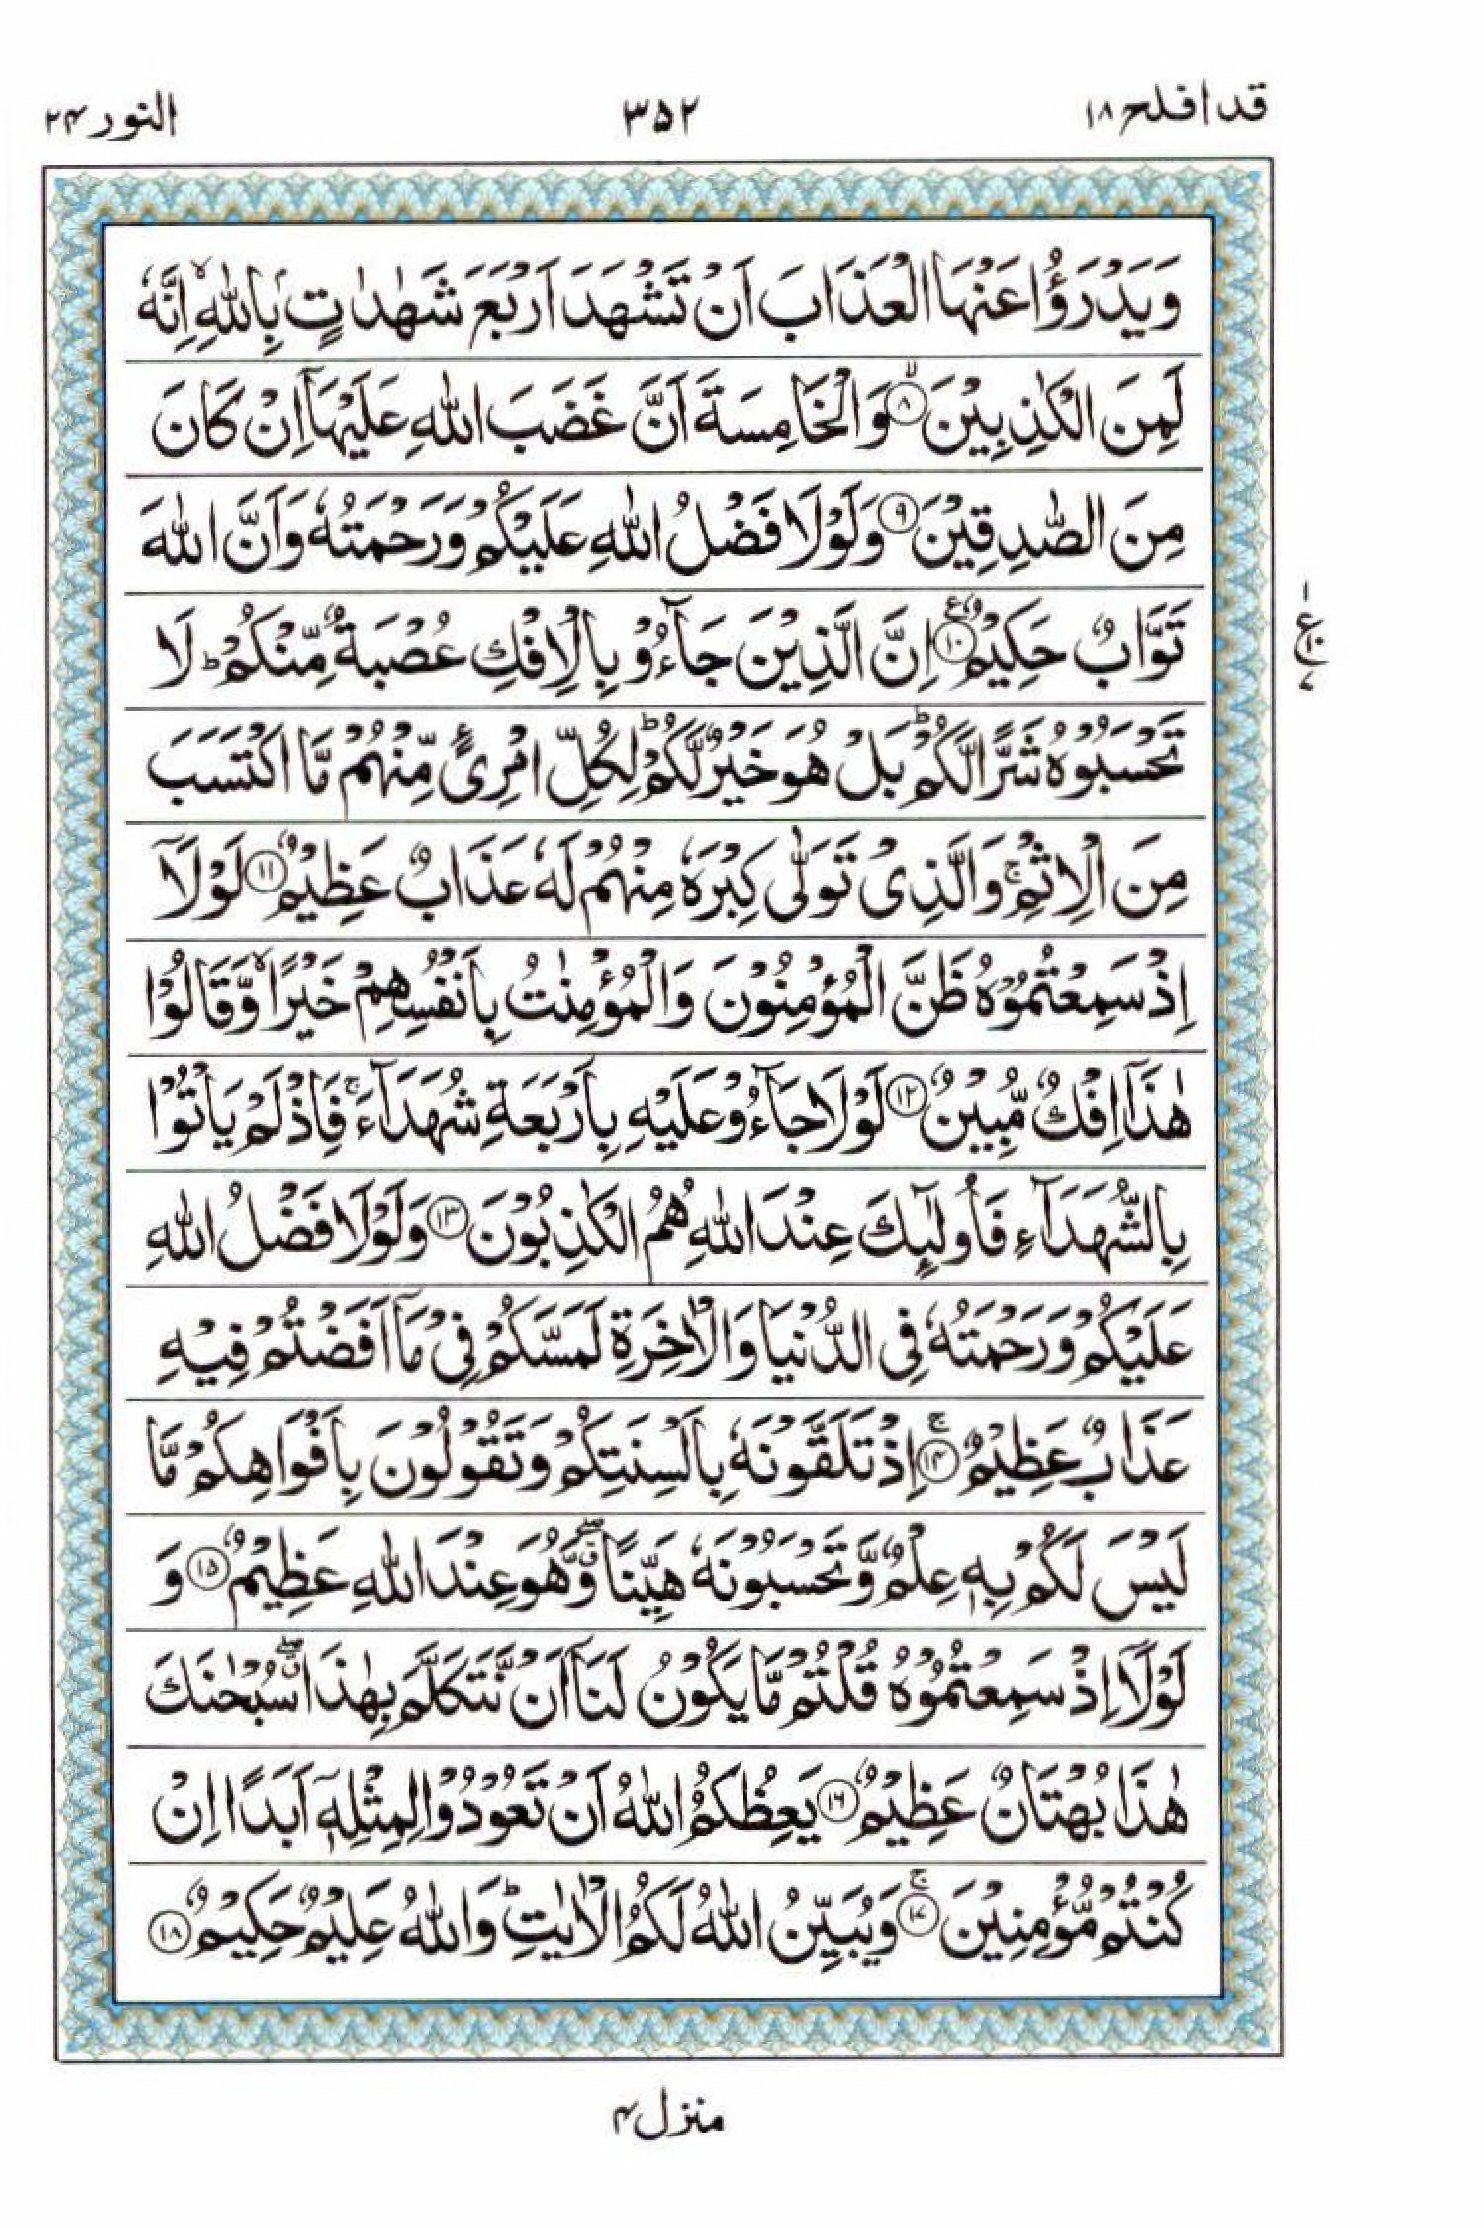 قد افلح ۱۸
۳۵۲
النور ۲۴
وَيَدْرَؤُا عَنْهَا الْعَذَابَ اَنْ تَشْهَدَ اَرْبَعَ شَهٰدٰتٍۭ بِاللّٰهِ ۙ اِنَّهٗ
لَمِنَ الْكٰذِبِيْنَ ۙ﴿۸﴾ وَالْخَامِسَةَ اَنَّ غَضَبَ اللّٰهِ عَلَيْهَاۤ اِنْ كَانَ
مِنَ الصّٰدِقِيْنَ ﴿۹﴾ وَلَوْلَا فَضْلُ اللّٰهِ عَلَيْكُمْ وَرَحْمَتُهٗ وَاَنَّ اللّٰهَ
تَوَّابٌ حَكِيْمٌ ﴿۱۰﴾ۧ اِنَّ الَّذِيْنَ جَآءُوْ بِالْاِفْكِ عُصْبَةٌ مِّنْكُمْ ؕ لَا
تَحْسَبُوْهُ شَرًّا لَّكُمْ ؕ بَلْ هُوَ خَيْرٌ لَّكُمْ ؕ لِكُلِّ امْرِئٍ مِّنْهُمْ مَّا اكْتَسَبَ
مِنَ الْاِثْمِ ۚ وَالَّذِيْ تَوَلّٰى كِبْرَهٗ مِنْهُمْ لَهٗ عَذَابٌ عَظِيْمٌ ﴿۱۱﴾ لَوْلَاۤ
اِذْ سَمِعْتُمُوْهُ ظَنَّ الْمُؤْمِنُوْنَ وَالْمُؤْمِنٰتُ بِاَنْفُسِهِمْ خَيْرًا ۙ وَّقَالُوْا
هٰذَاۤ اِفْكٌ مُّبِيْنٌ ﴿۱۲﴾ لَوْلَا جَآءُوْ عَلَيْهِ بِاَرْبَعَةِ شُهَدَآءَ ۚ فَاِذْ لَمْ يَاْتُوْا
بِالشُّهَدَآءِ فَاُولٰٓئِكَ عِنْدَ اللّٰهِ هُمُ الْكٰذِبُوْنَ ﴿۱۳﴾ وَلَوْلَا فَضْلُ اللّٰهِ
عَلَيْكُمْ وَرَحْمَتُهٗ فِي الدُّنْيَا وَالْاٰخِرَةِ لَمَسَّكُمْ فِيْ مَاۤ اَفَضْتُمْ فِيْهِ
عَذَابٌ عَظِيْمٌ ۚ﴿۱۴﴾ اِذْ تَلَقَّوْنَهٗ بِاَلْسِنَتِكُمْ وَتَقُوْلُوْنَ بِاَفْوَاهِكُمْ مَّا
لَيْسَ لَكُمْ بِهٖ عِلْمٌ وَّتَحْسَبُوْنَهٗ هَيِّنًا ۖۗ وَّهُوَ عِنْدَ اللّٰهِ عَظِيْمٌ ﴿۱۵﴾ وَ
لَوْلَاۤ اِذْ سَمِعْتُمُوْهُ قُلْتُمْ مَّا يَكُوْنُ لَنَاۤ اَنْ نَّتَكَلَّمَ بِهٰذَا ۖۗ سُبْحٰنَكَ
هٰذَا بُهْتَانٌ عَظِيْمٌ ﴿۱۶﴾ يَعِظُكُمُ اللّٰهُ اَنْ تَعُوْدُوْا لِمِثْلِهٖۤ اَبَدًا اِنْ
كُنْتُمْ مُّؤْمِنِيْنَ ۚ﴿۱۷﴾ وَيُبَيِّنُ اللّٰهُ لَكُمُ الْاٰيٰتِ ؕ وَاللّٰهُ عَلِيْمٌ حَكِيْمٌ ﴿۱۸﴾
۱
ع ۱۰
۷
منزل ۴